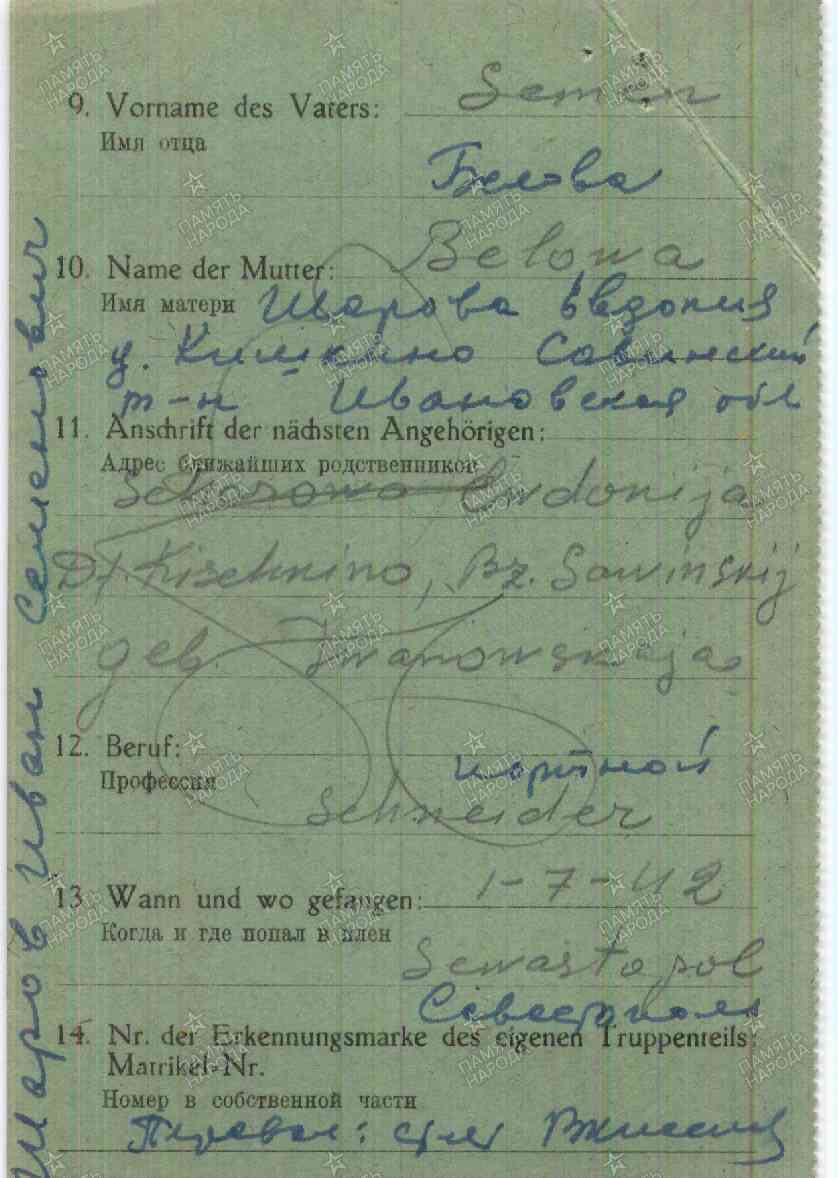 9. Vorname des Vaters: Semen
Имя отца
Белова
10. Name der Mutter: Belowa
Имя матери Шарова Евдокия
д. Кишкино Савинский
р-н Ивановская обл
11. Anschrift der nächsten Angehörigen:
Адрес ближайших родственников
Scharowa Ewdonija
Df. Kischnino, Bz. Sawinskij
geb. Iwanowskaja
12. Beruf:
портной
Профессия
Schneider
13. Wann und wo gefangen: 1-7-42
Когда и где попал в плен
Sewastopol
Севастополь
14. Nr. der Erkennungsmarke des eigenen Truppenteils:
Matrikel-Nr.
Номер в собственной части
Перевол:
Шаров Иван Семенович
ПАМЯТЬ НАРОДА